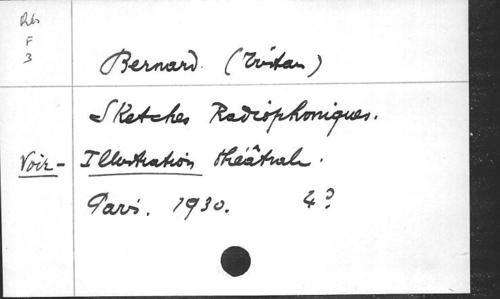 Rés
F
3
Bernard. (Tristan)
Sketches Radiophoniques.
Voir - Illustration théâtrale.
Paris. 1930. 4°